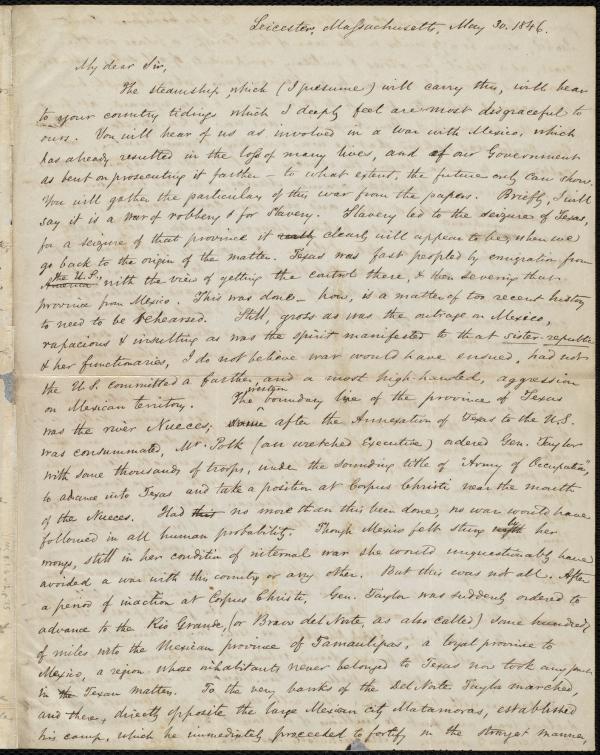 Leicester, Massachusetts, May 30. 1846.
My dear Sir,
The steamship, which (I presume) will carry this, will bear
to your country tidings which I deeply feel are most disgraceful to
ours. You will hear of us as involved in a war with Mexico, which
has already resulted in the loss of many lives, and of our Government
as bent on prosecuting it farther – to what extent, the future only can show.
You will gather the particulars of this war from the papers. Briefly, I will
say it is a war of robbery & for Slavery. Slavery led to the seizure of Texas,
for a seizure of that province it really clearly will appear to be, when we
go back to the origin of the matter. Texas was fast peopled by emigration from
the U.S.
America with the view of getting the control there, & then severing that
province from Mexico. This was done – how, is a matter of too recent history
to need to be rehearsed. Still, gross as was the outrage on Mexico,
rapacious & insulting as was the spirit manifested to that sister-republic
& her functionaries, I do not believe war would have ensued, had not
the U.S. committed a farther, and a most high-handed, aggression
on Mexican territory. The western boundary line of the province of Texas
was the river Nueces; after the Annexation of Texas to the U.S.
was consummated, Mr. Polk (our wretched Executive) ordered Gen. Taylor
with some thousands of troops, under the sounding title of "Army of Occupation",
to advance into Texas and take a position at Corpus Christi near the mouth
of the Nueces. Had this no more than this been done, no war would have
followed in all human probability. Though Mexico felt strongly her
wrongs, still in her condition of internal war she would unquestionably have
avoided a war with this country or any other. But this was not all. After
a period of inaction at Corpus Christi, Gen. Taylor was suddenly ordered to
advance to the Rio Grande, (or Bravo del Norte, as also called) some hundreds
of miles into the Mexican province of Tamaulipas, a loyal province to
Mexico, a region whose inhabitants never belonged to Texas nor took any part
in the Texan matters. To the very banks of the Del Norte Taylor marched,
and there, directly opposite the large Mexican city Matamoras, established
his camp, which he immediately proceeded to fortify in the strongest manner,